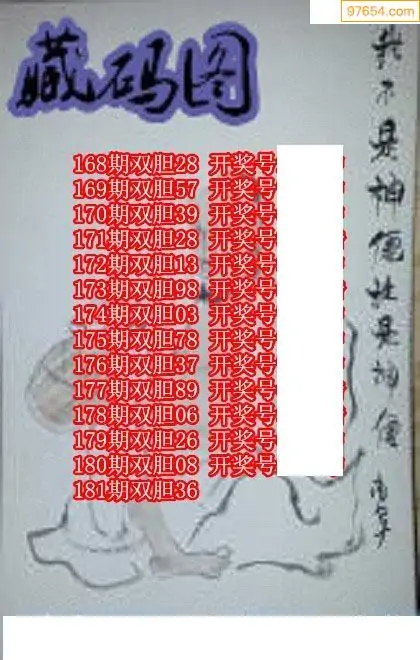 97654.com
藏码图
168期双胆28 开奖号
169期双胆57 开奖号
170期双胆39 开奖号
171期双胆28 开奖号
172期双胆13 开奖号
173期双胆98 开奖号
174期双胆03 开奖号
175期双胆78 开奖号
176期双胆37 开奖号
177期双胆89 开奖号
178期双胆06 开奖号
179期双胆26 开奖号
180期双胆08 开奖号
181期双胆36
我不是神是神